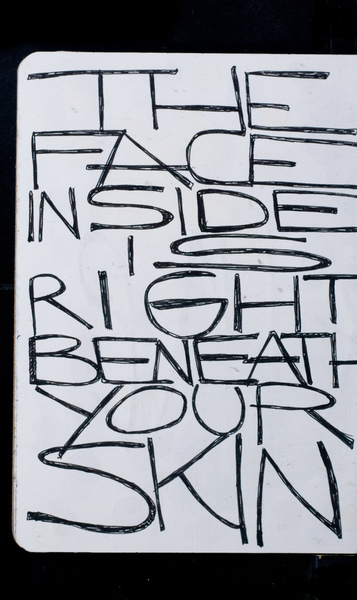 THE
FACE
INSIDE
IS
RIGHT
BENEATH
YOUR
SKIN